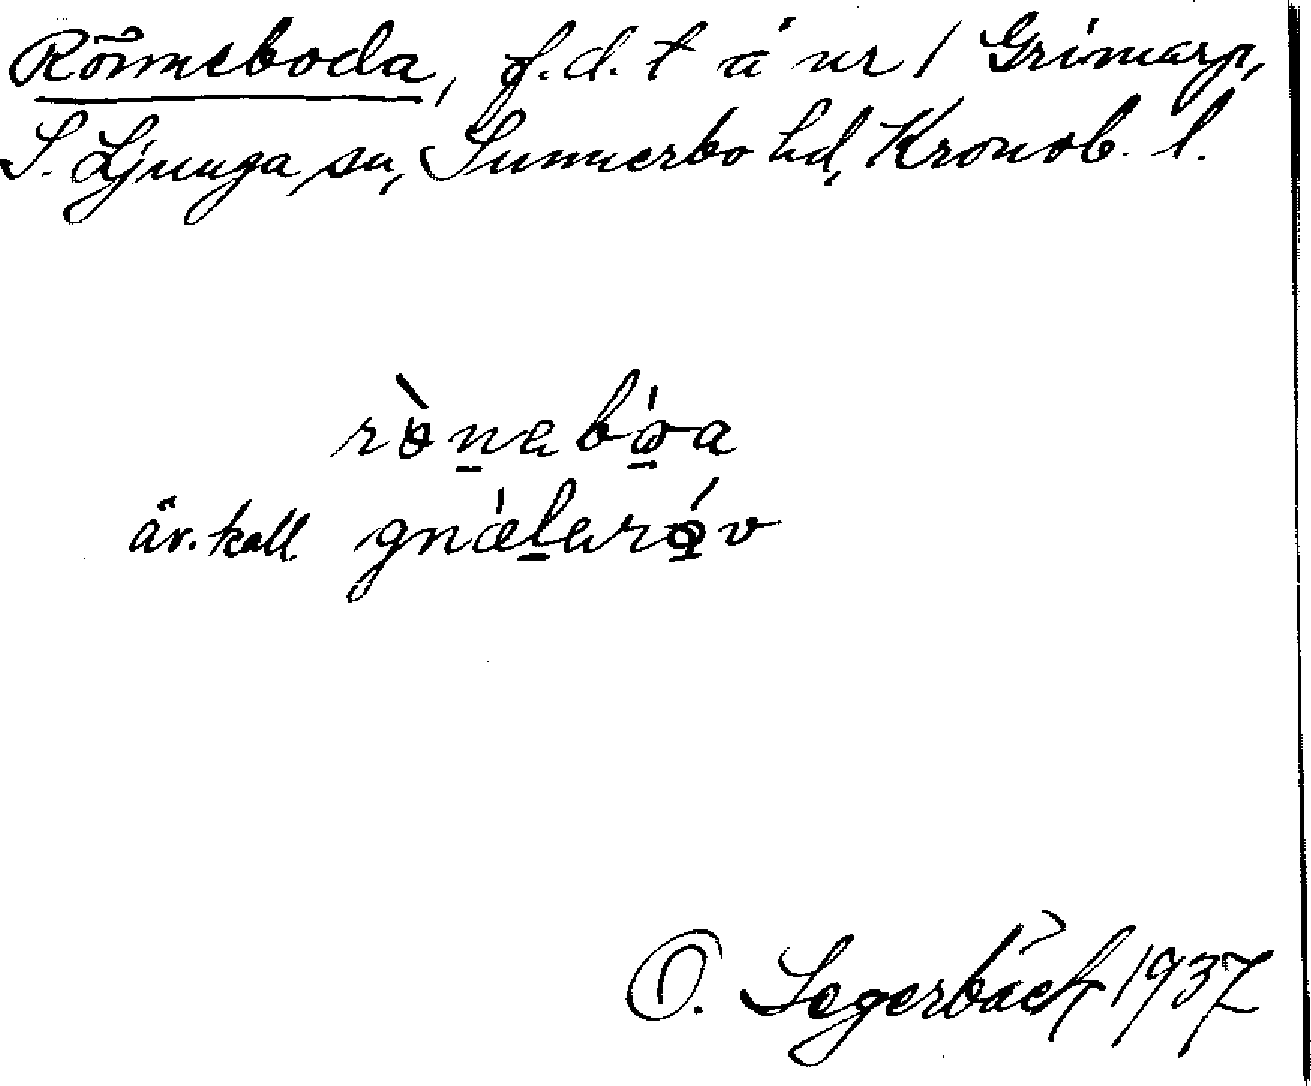 Rönneboda, f.d. t å nr 1 Grimarp,
S. Ljunga sn, Sunnerbo hd, Kronob. l.
rònabóa
äv. kall gnálaróv
O. Segerbäck 1937